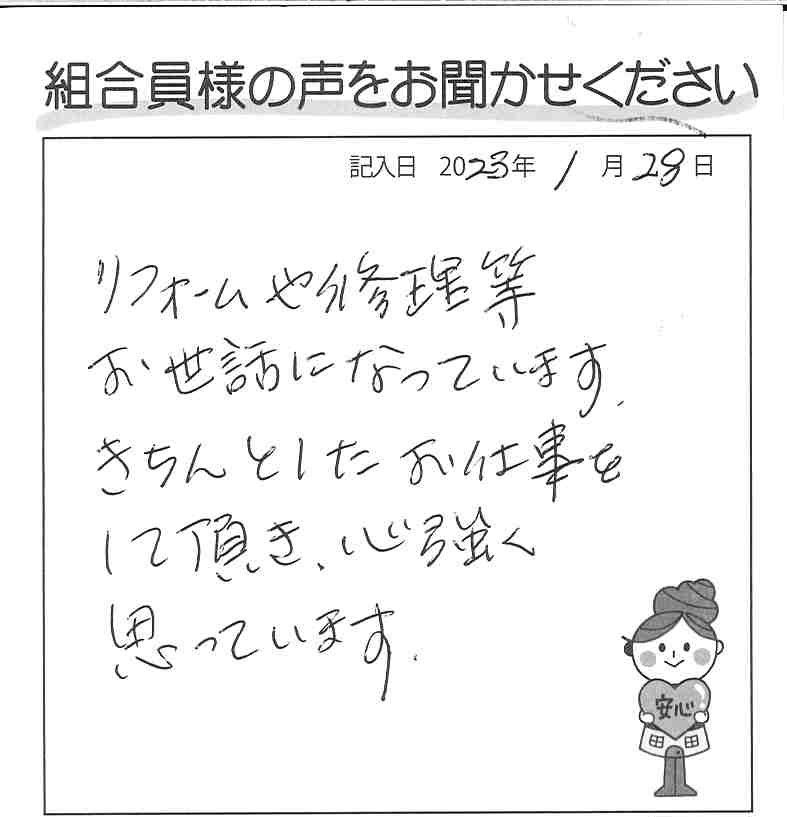 組合員様の声をお聞かせください
記入日 2023年 1月28日
リフォームや修理等
お世話になっています.
きちんとしたお仕事を
して頂き、心強く
思っています.
安心